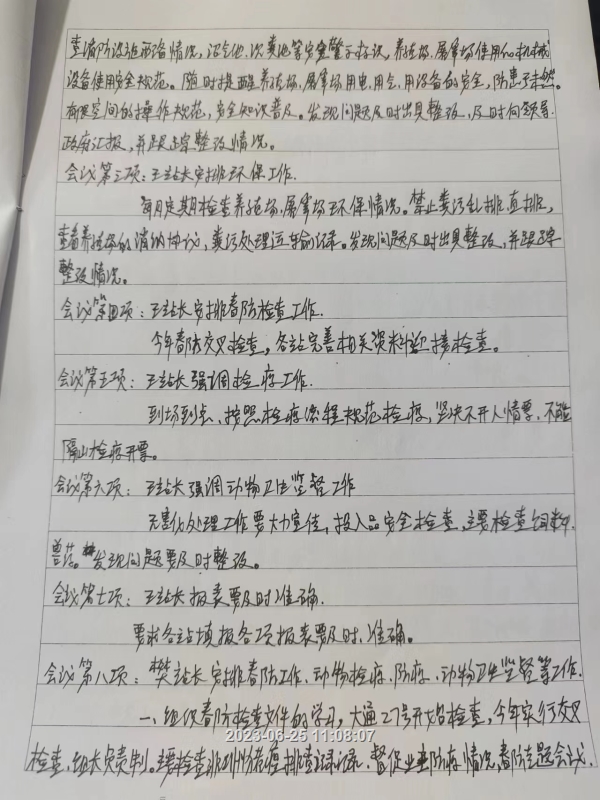 查消防设施配备情况，沼气池、次粪池等安全警示标识，养殖场、屠宰场使用的机械
设备使用安全规范。随时提醒养殖场、屠宰场用电、用气、用设备的安全，防患于未然。
有限空间的操作规范，安全知识普及。发现问题及时出具整改，及时向领导、
政府汇报，并跟踪整改情况。
会议第三项：王站长安排环保工作.
每月定期检查养殖场、屠宰场环保情况。禁止粪污乱排、直排，
查看养殖场的消纳协议，粪污处理运输记录。发现问题及时出具整改，并跟踪
整改情况。
会议第四项：王站长安排春防检查工作.
今年春防交叉检查，各站完善相关资料迎接检查。
会议第五项：王站长强调检疫工作.
到场到点、按照检疫流程规范检疫，坚决不开人情票，不能
隔山检疫开票。
会议第六项：王站长强调动物卫生监督工作
无害化处理工作要大力宣传，投入品安全检查，主要检查饲料、
兽药。发现问题要及时整改。
会议第七项：王站长报表要及时准确.
要求各站填报各项报表要及时、准确。
会议第八项：樊站长安排春防工作、动物检疫、防疫、动物卫生监督等工作.
一、组织春防检查文件的学习，大通27号开始检查，今年实行交叉
2023-06-25 11:08:07
检查，组长负责制。主要检查非洲猪瘟排查记录，督促业主防疫情况，春防专题会议.